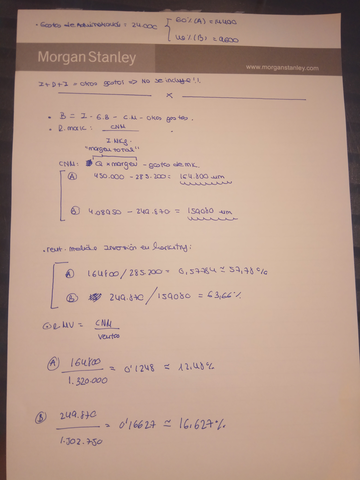 Gastos de Administración: 24.000 { 60% (A) = 14.400
40% (B) = 9.600
Morgan Stanley
www.morganstanley.com
I+D+I = otros gastos! → No se incluye!!
x
• B = I - G.B - C.M - otros gastos.
• R. mark: CNM
I Mkg
"margen total"
CNM: Q x margen - gastos de mk.
(A) 450.000 - 285.200 = 164.800 um
(B) 4.08950 - 249.870 = 159080 um
• rent. sobre Inversión en marketing:
(A) 164800/285.200 = 0,57784 ≃ 57,78%
(B) 249.870/159080 = 63,66%
R MV = CNM
Ventas
(A) 164800 = 0'1248 ≃ 12,48%
1.320.000
(B) 249.870 = 0'16627 ≃ 16,627%
1.502.750